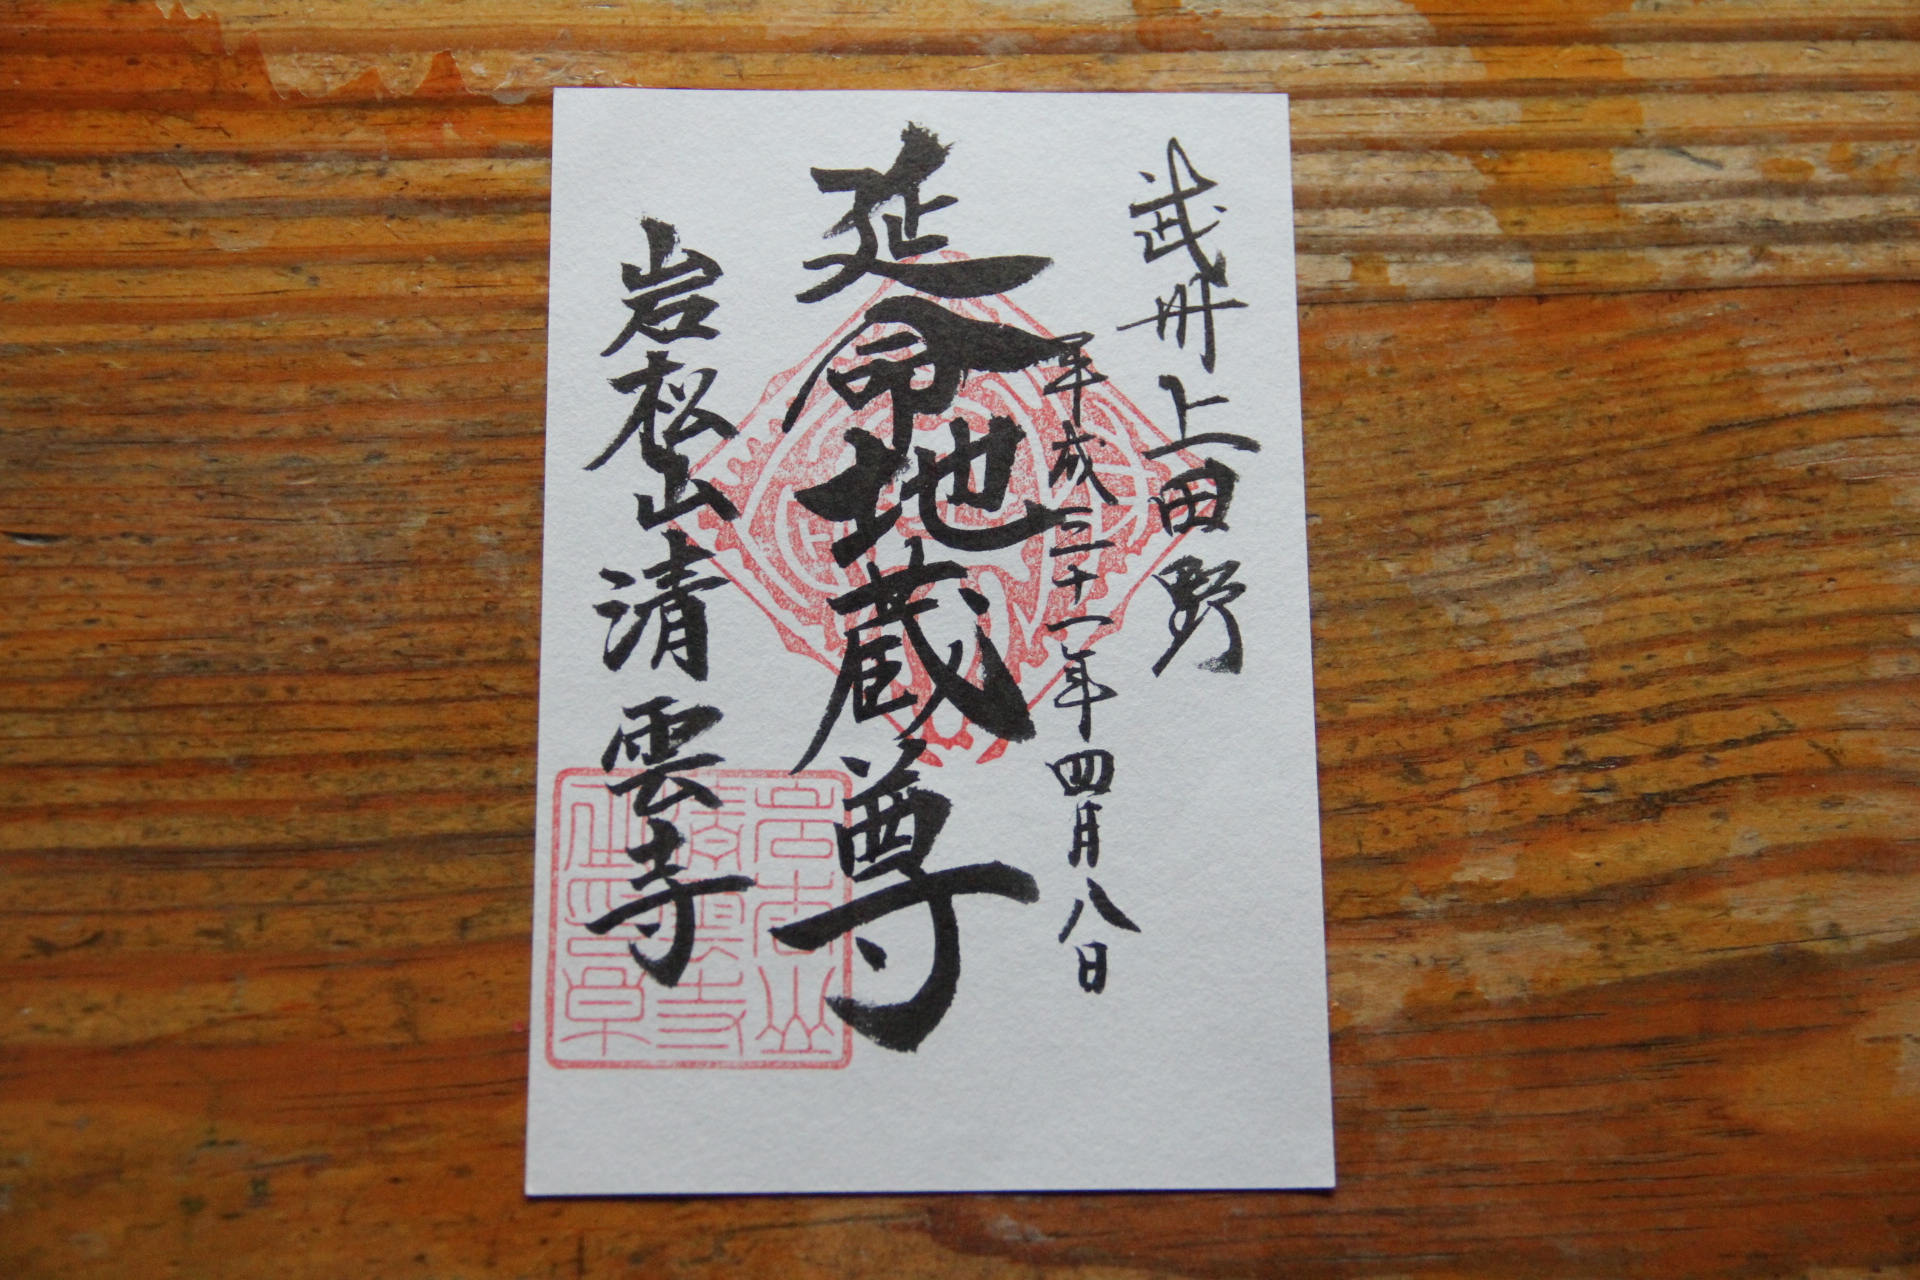 武州上田野
平成三十一年四月八日
延命地蔵尊
岩松山清雲寺